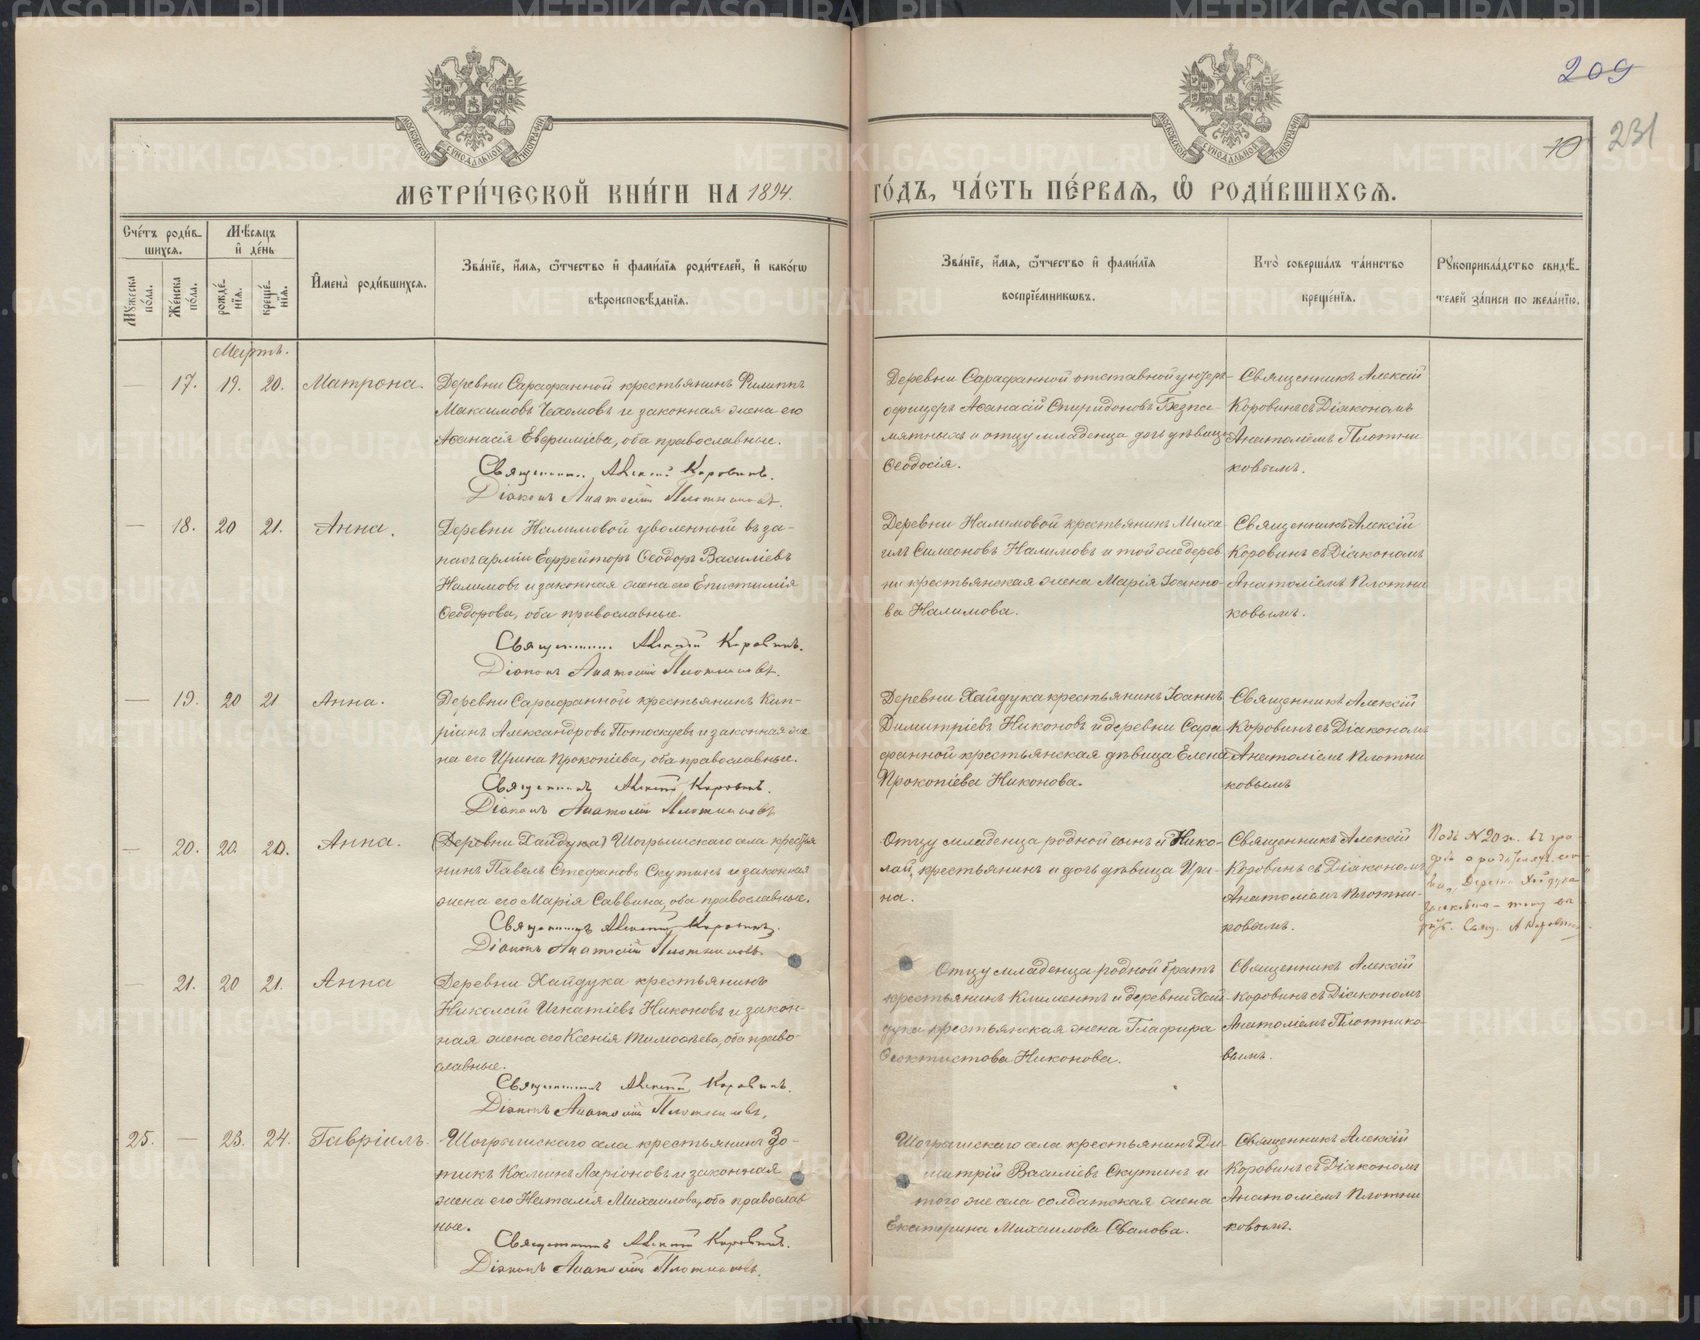 209
231
10
МОСКОВСКОЙ СѴНОДАЛЬНОЙ ТИПОГРАФІИ
МОСКОВСКОЙ СѴНОДАЛЬНОЙ ТИПОГРАФІИ
МЕТРИ́ЧЕСКОЙ КНИ́ГИ НА 1894. ГО́ДЪ, ЧА́СТЬ ПЕ́РВАѦ, Ѡ҆ РОДИ́ВШИХСѦ.
Сче́тъ роди́в-
шихсѧ.
Мꙋжеска по́ла.
Же́нска по́ла.
Мѣ́сѧцъ
и҆ де́нь
рожде́нїѧ.
креще́нїѧ.
И҆мена̀ роди́вшихсѧ.
Зва́нїе, и҆́мѧ, ѻ҆́тчество и҆ фами́лїѧ роди́телей, и҆ како́гѡ
вѣроисповѣ́данїѧ.
Зва́нїе, и҆́мѧ, ѻ҆́тчество и҆ фами́лїѧ
воспрїе́мникѡвъ.
Кто̀ соверша́лъ та́инство
креще́нїѧ.
Рꙋкоприкла́дство свидѣ́-
телей за́писи по жела́нїю.
Мартъ.
— 17. 19. 20. Матрона.
Деревни Сарафанной крестьянинъ Филиппъ
Максимовъ Чехомовъ и законная жена его
Аѳанасія Евфиміева, оба православные.
Священникъ Алексій Коровинъ.
Діаконъ Анатолій Плотниковъ.
Деревни Сарафанной отставной унтеръ-
офицеръ Аѳанасій Спиридоновъ Безпа-
мятныхъ и отцу младенца дочь дѣвица
Ѳеодосія.
Священникъ Алексій
Коровинъ съ Діакономъ
Анатоліемъ Плотни
ковымъ.
— 18. 20 21. Анна.
Деревни Налимовой уволенный въ за-
пасъ арміи Ефрейторъ Ѳеодоръ Василіевъ
Налимовъ и законная жена его Епистимія
Ѳеодорова, оба православные.
Священникъ Алексій Коровинъ.
Діаконъ Анатолій Плотниковъ.
Деревни Налимовой крестьянинъ Миха-
илъ Симеоновъ Налимовъ и той же дерев
ни крестьянская жена Марія Іоанно-
ва Налимова.
Священникъ Алексій
Коровинъ съ Діакономъ
Анатоліемъ Плотни
ковымъ.
— 19. 20 21 Анна.
Деревни Сарафанной крестьянинъ Кип-
ріанъ Александровъ Потоскуевъ и законная же
на его Ирина Прокопіева, оба православные.
Священникъ Алексій Коровинъ.
Діаконъ Анатолій Плотниковъ
Деревни Хайдука крестьянинъ Іоаннъ
Димитріевъ Никоновъ и деревни Сара
фанной крестьянская дѣвица Елена
Прокопіева Никонова.
Священникъ Алексій
Коровинъ съ Діакономъ
Анатоліемъ Плотни
ковымъ
— 20. 20. 20. Анна.
(Деревни Хайдука) Шогрышскаго села крестья
нинъ Павелъ Стефановъ Скутинъ и законная
жена его Марія Саввина, оба православные.
Священникъ Алексій Коровинъ.
Діаконъ Анатолій Плотниковъ.
Отцу младенца родной сынъ Нико-
лай, крестьянинъ и дочь дѣвица Ири-
на.
Священникъ Алексій
Коровинъ съ Діакономъ
Анатоліемъ Плотни-
ковымъ.
Подъ № 20 ж. въ гра-
фѣ о родителяхъ сло-
ва „Деревни Хайдука"
зачеркнуты – тому вѣ
рить. Свящ. А Коровинъ
— 21. 20 21. Анна
Деревни Хайдука крестьянинъ
Николай Игнатіевъ Никоновъ и закон-
ная жена его Ксенія Тимоѳеева, оба право-
славные.
Священникъ Алексій Коровинъ.
Діаконъ Анатолій Плотниковъ.
Отцу младенца родной братъ
крестьянинъ Климентъ и деревни Хай-
дука крестьянская жена Глафира
Ѳеоктистова Никонова.
Священникъ Алексій
Коровинъ съ Діакономъ
Анатоліемъ Плотнико-
вымъ.
25. — 23. 24. Гавріилъ.
Шогрышскаго села крестьянинъ Зо-
тикъ Косминъ Ларіоновъ и законная
жена его Наталія Михаилова, оба православ
ные.
Священникъ Алексій Коровинъ.
Діаконъ Анатолій Плотниковъ.
Шогрышскаго села крестьянинъ Ди-
митрій Василіевъ Скутинъ и
того же села солдатская жена
Екатерина Михаилова Свалова.
Священникъ Алексій
Коровинъ съ Діакономъ
Анатоліемъ Плотни
ковымъ.
METRIKI.GASO-URAL.RU